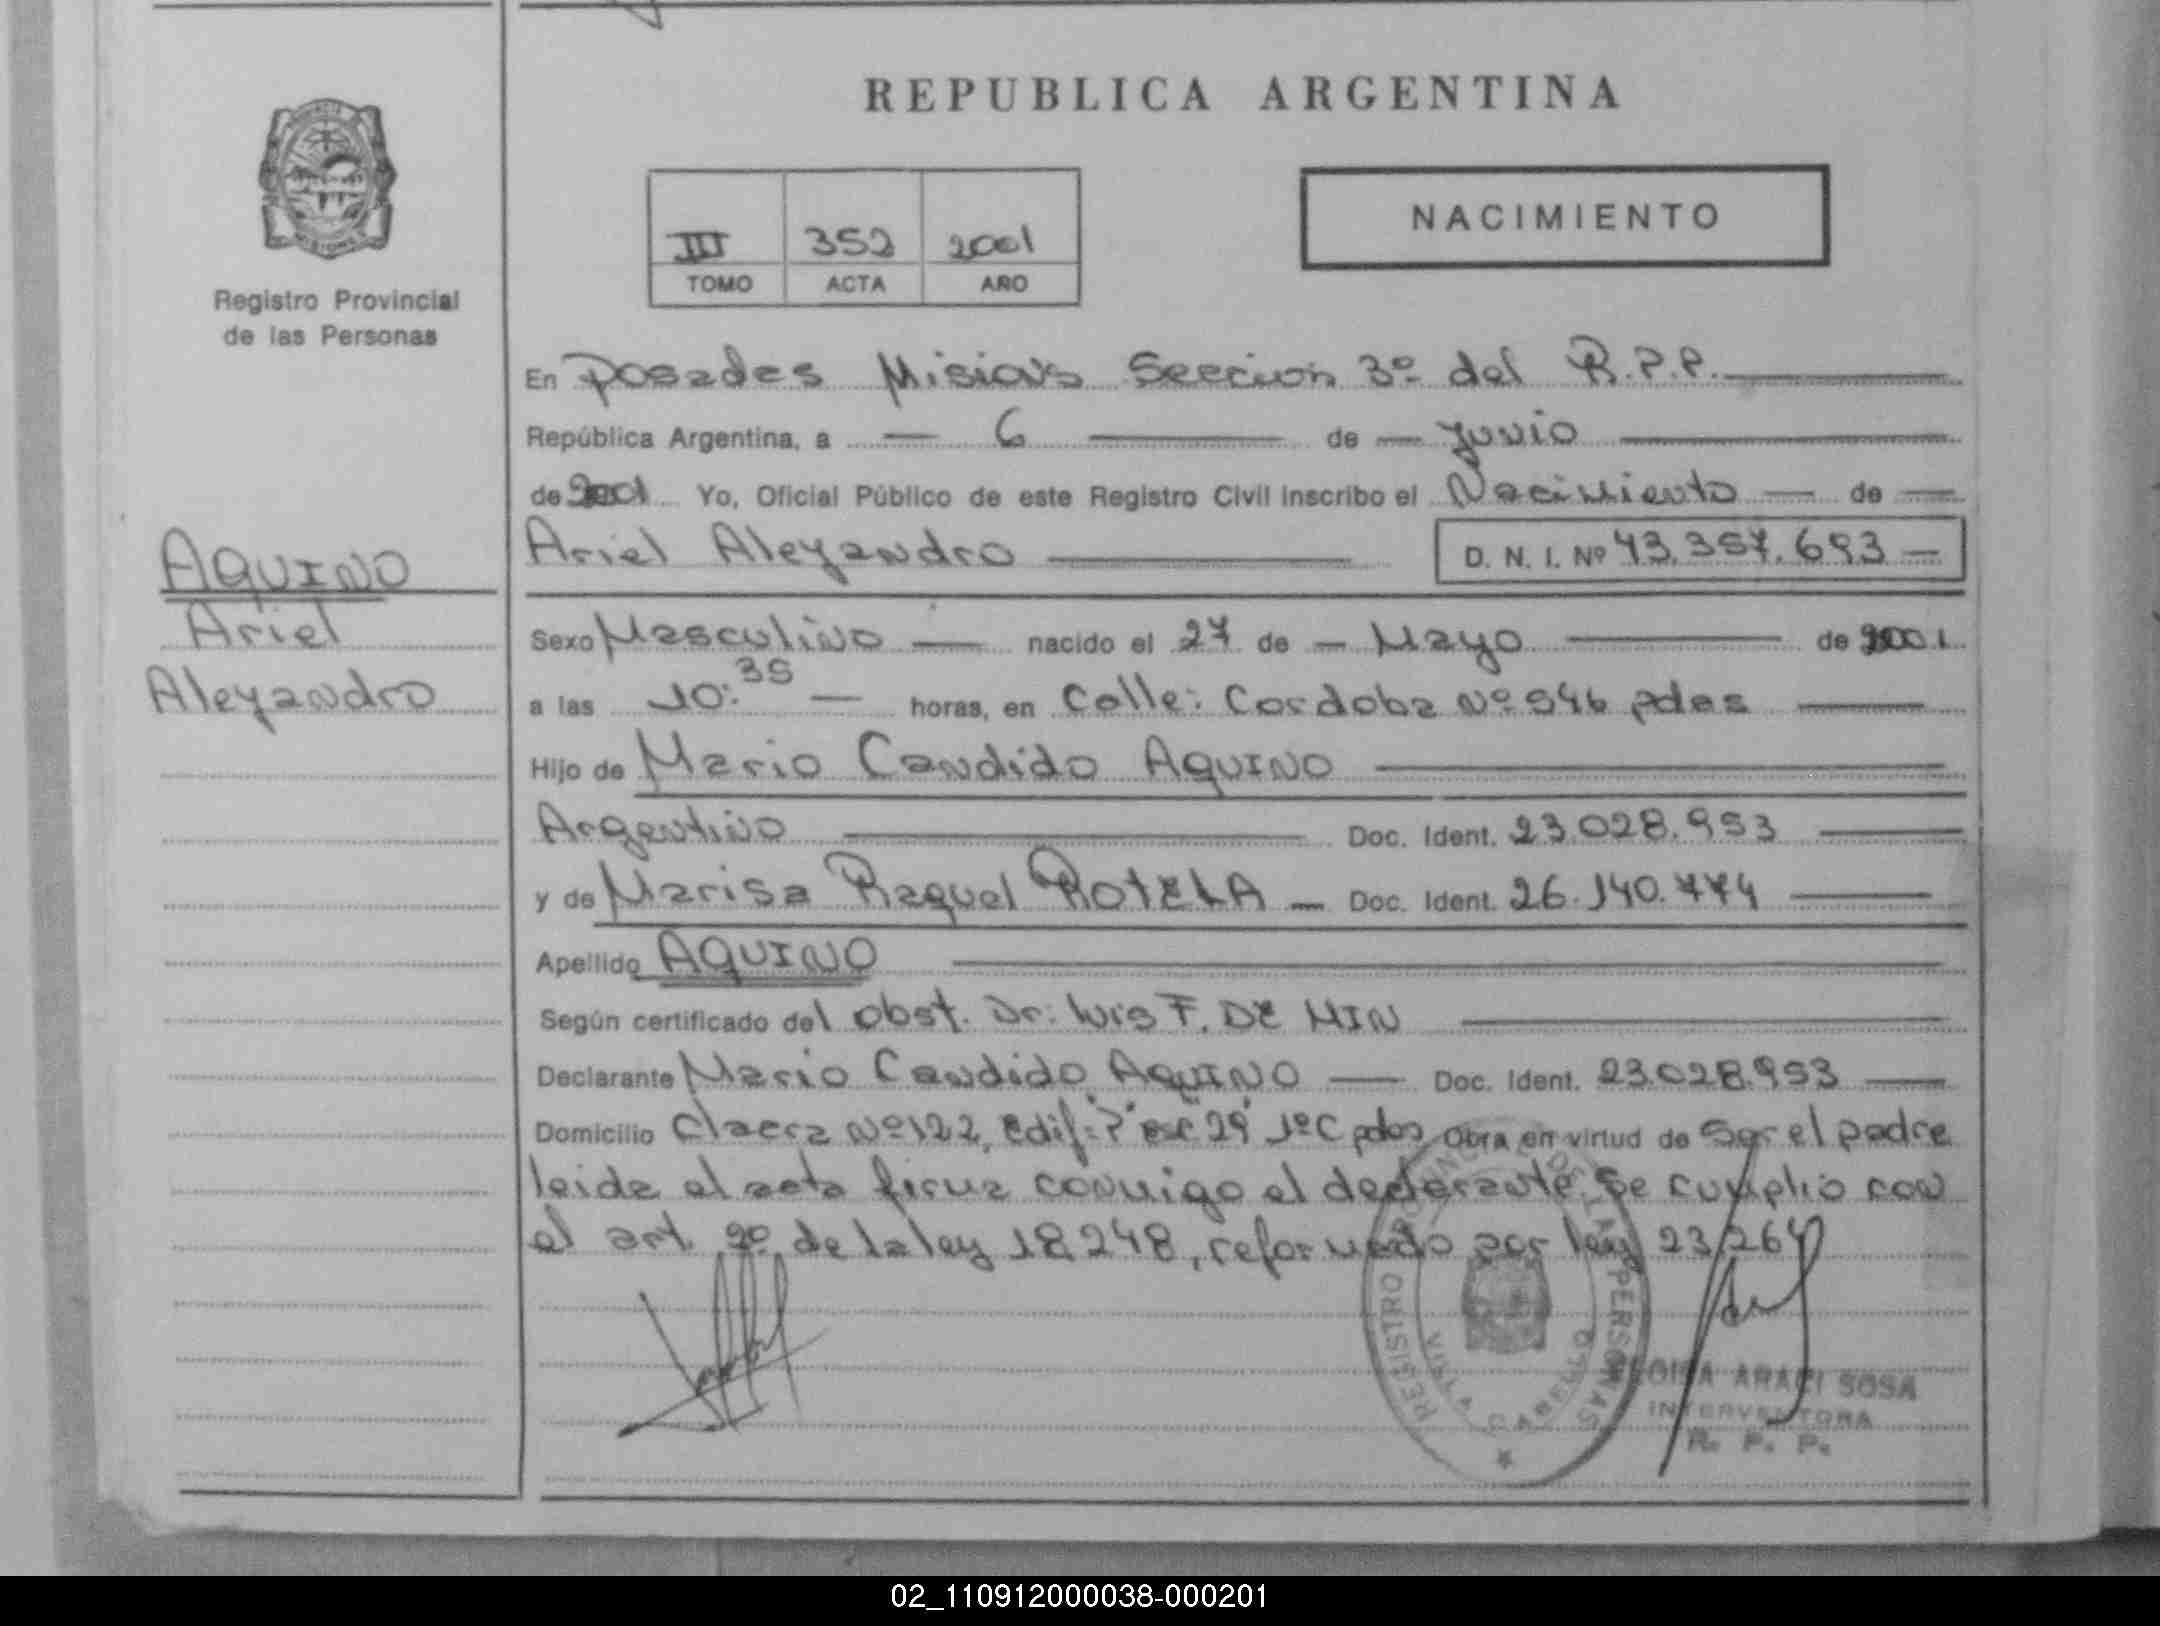 REPUBLICA ARGENTINA
Registro Provincial
de las Personas
III 352 2001
TOMO ACTA AÑO
NACIMIENTO
En Posadas Misiones Seccion 3º del R.P.P.
República Argentina, a 6 de Junio
de 2001 Yo, Oficial Público de este Registro Civil inscribo el Nacimiento de
Ariel Aleyandro D. N. I. Nº 43.357.693
AQUINO
Ariel
Aleyandro
Sexo Masculino nacido el 27 de Mayo de 2001
a las 10:35 horas, en Calle: Cordoba Nº 546 pdas
Hijo de Mario Candido AQUINO
Argentino Doc. Ident. 23.028.953
y de Marisa Raquel ROTELA Doc. Ident. 26.140.774
Apellido AQUINO
Según certificado del obst. Dr: Luis F. DE MIN
Declarante Mario Candido AQUINO Doc. Ident. 23.028.953
Domicilio Nº 122, edif: 29 1º C pdas Obra en virtud de Ser el padre
leida el acta firma conmigo el declarante. Se cumplio con
el art. 2º de la ley 18248, reformado por ley 23.264
REGISTRO PROVINCIAL DE LAS PERSONAS
VILLA CABELLO
ARACI SOSA
INTERVENTORA
R. P. P.
02_110912000038-000201